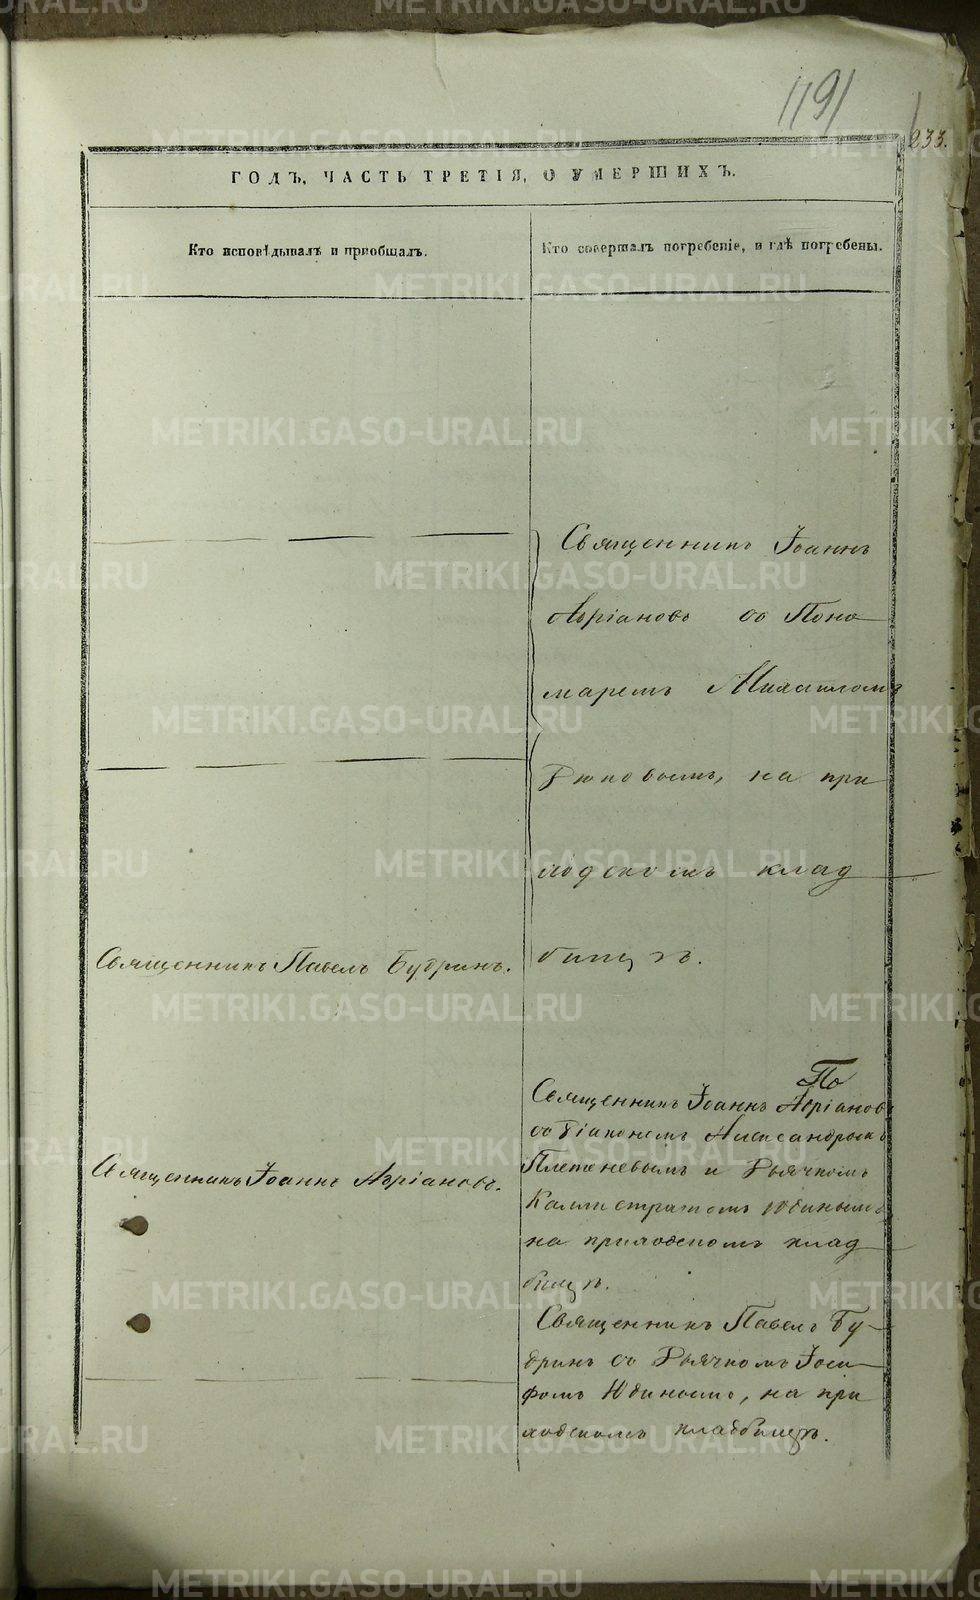 1191
233.
ГОДЪ, ЧАСТЬ ТРЕТІЯ, О УМЕРШИХЪ.
Кто исповѣдывалъ и пріобщалъ.
Кто совершалъ погребеніе, и гдѣ погребены.
Священникъ Іоаннъ
Авріановъ со Поно
маремъ Михаиломъ
на при
ходскомъ клад
бищѣ.
Священникъ Павелъ Будринъ.
По
Священникъ Іоаннъ Авріановъ
со Діакономъ Александромъ
Плетеневымъ и Дьячкомъ
Каллистратомъ Юдинымъ
на приходскомъ клад
бищѣ.
Священникъ Іоаннъ Авріановъ.
Священникъ Павелъ Бу-
дринъ со Дьячкомъ Іоси
фомъ Юдинымъ, на при
ходскомъ кладбищѣ.
METRIKI.GASO-URAL.RU